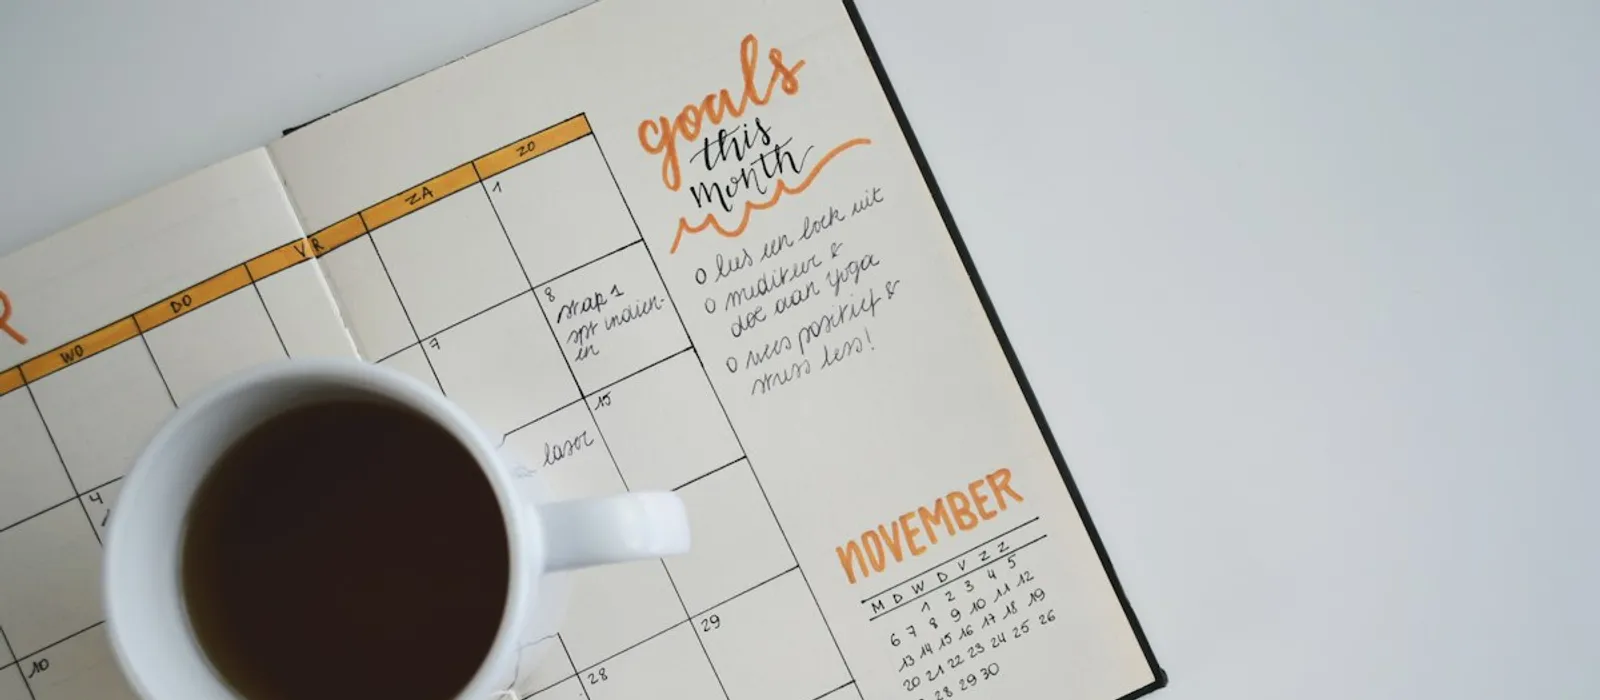 R
WO
DO
VR
ZA
ZO
1
4
7
8
stap 1
spr indien-
en
laser
15
10
28
29
goals
this
month
o lees een boek uit
o mediteer &
doe aan yoga
o wees positief &
stress less!
NOVEMBER
M D W D V Z Z
1 2 3 4 5
6 7 8 9 10 11 12
13 14 15 16 17 18 19
20 21 22 23 24 25 26
28 29 30